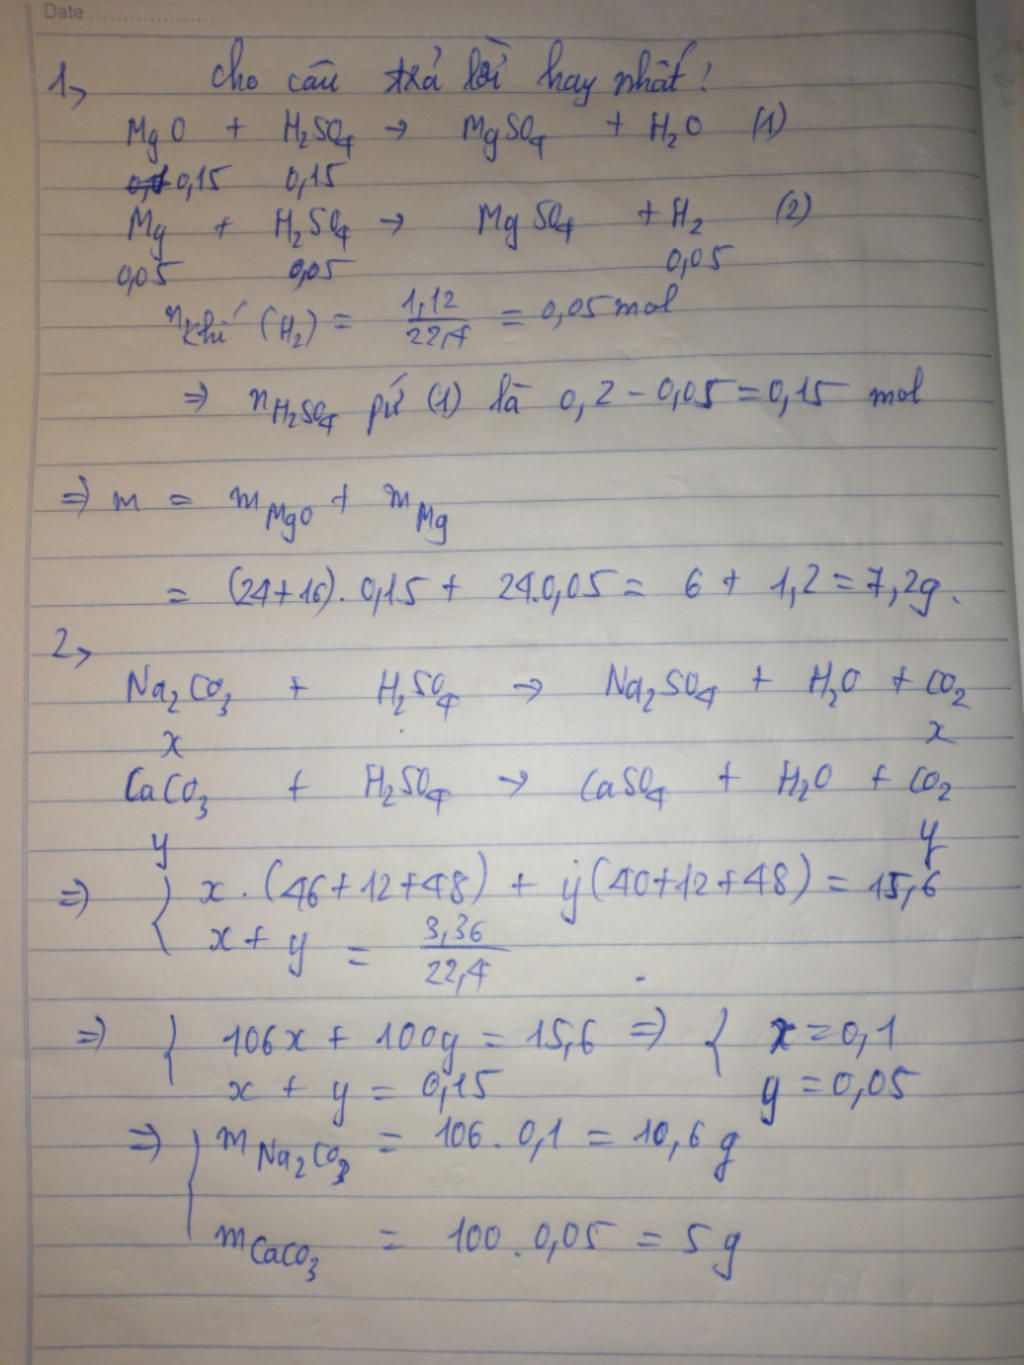 Date
1, Cho câu trả lời hay nhất!
MgO + H₂SO₄ → MgSO₄ + H₂O (1)
0,15 0,15
Mg + H₂SO₄ → MgSO₄ + H₂ (2)
0,05 0,05 0,05
n khí (H₂) = 1,12/22,4 = 0,05 mol
⇒ n H₂SO₄ pứ (1) là 0,2 - 0,05 = 0,15 mol
⇒ m = m MgO + m Mg
= (24+16). 0,15 + 24.0,05 = 6 + 1,2 = 7,2g.
2,
Na₂CO₃ + H₂SO₄ → Na₂SO₄ + H₂O + CO₂
x x
CaCO₃ + H₂SO₄ → CaSO₄ + H₂O + CO₂
y y
⇒ { x . (46+12+48) + y(40+12+48) = 15,6
x + y = 3,36/22,4
⇒ { 106x + 100y = 15,6 ⇒ { x = 0,1
x + y = 0,15 y = 0,05
⇒ { m Na₂CO₃ = 106 . 0,1 = 10,6 g
m CaCO₃ = 100 . 0,05 = 5 g